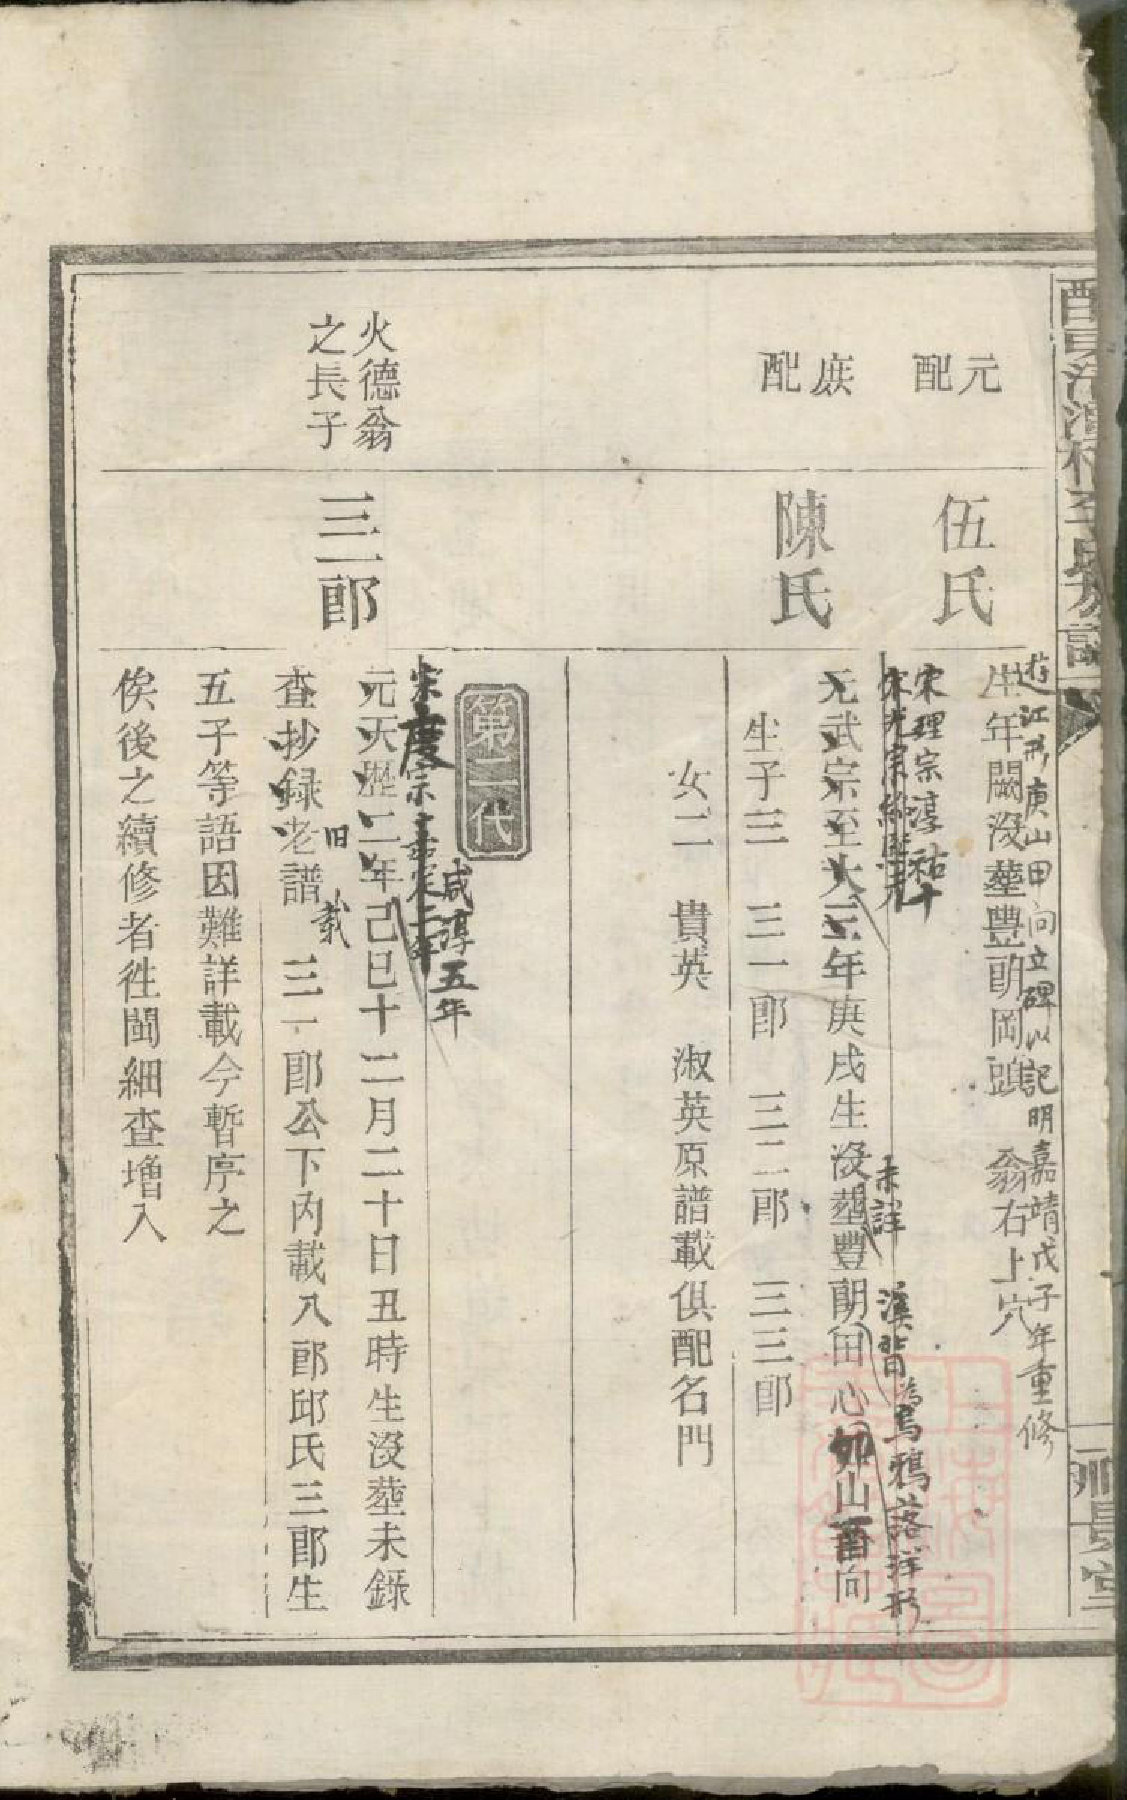 元
配
伍氏
生年闕沒塟豐朗岡頭 翁右上穴
江形庚山甲向立碑以記明嘉靖戊子年重修
宋理宗淳祐十
宋光宗紹熙元
庶
配
陳氏
元武宗至大三年庚戌生沒塟豐朗田心卯山酉向
未詳 溪背為烏鴉落洋形
生子三 三一郎 三二郎 三三郎
女二 貴英 淑英原譜載俱配名門
第二代
火德翁
之長子
三一郎
咸淳五年
宋度宗嘉定二年
元天歷二年己巳十二月二十日丑時生沒塟未錄
旧 載
查抄録老譜 三一郎公下內載八郎邱氏三郎生
五子等語因難詳載今暫序之
俟後之續修者徃閩細查增入